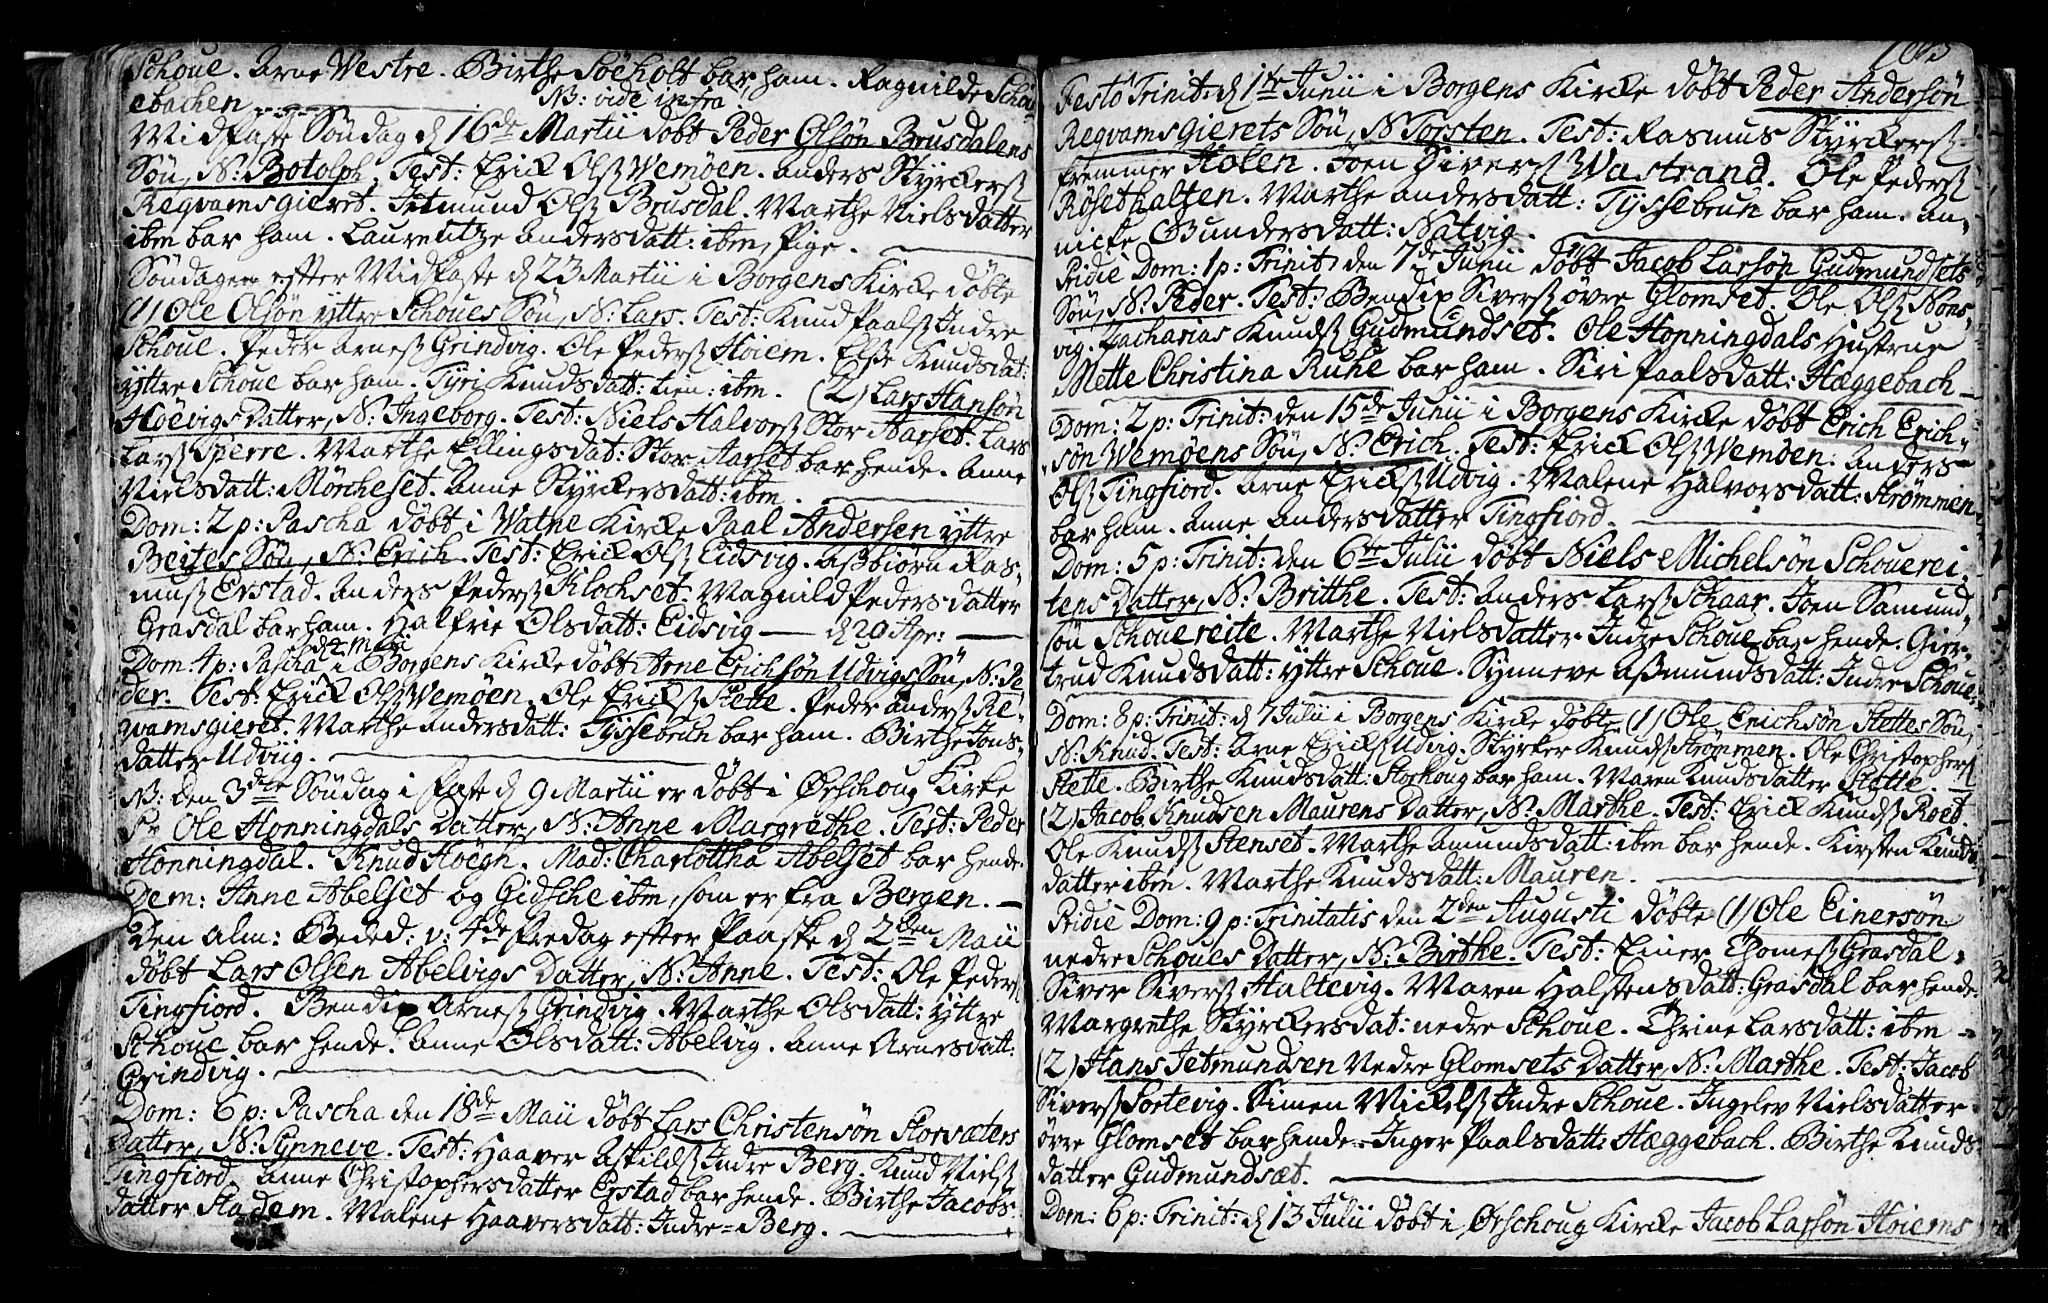 Schoue. Arne Vestre. Birthe Søeholt bar ham. Ragnilde Schou-
ebachen
N: vide infra
Midfaste Søndag d 16de Martii døbt Peder Olsøn Brusdalens
Søn, N: Botolph. Test: Erick Ols: Wemøen. Anders Styrckers:
Regvamsgieret. Jetmund Ols: Brusdal. Marthe Nielsdatter
ibm bar ham. Laurentze Andersdatt: ibm, Pige.
Søndagen efter Midfaste d 23 Martii i Borgens Kirke døbte
(1) Ole Olsøn yttre Schoues Søn, N: Lars. Test: Knud Paals: Indre
Schoue. Peder Arnes: Grindvig. Ole Peders: Høiem. Else Knudsdat:
yttre Schoue bar ham. Tyri Knudsdatt: tien: ibm. (2) Lars Hansøn
Høevigs Datter, N: Ingeborg. Test: Niels Halvors: Stor Aarset. Lars
Lars: Sperre. Marthe Ellingsdat: Stor Aarset bar hende. Anne
Nielsdatt: Mørcheset. Anne Styrckersdatt: ibm.
Dom: 2 p: Pascha døbt i Watne Kircke Paal Andersen yttre
Beites Søn, N: Erich. Test: Erick Ols: Eidsvig. Asbiørn Ras-
mus: Erstad. Anders Peders: Klochset. Magnild Pedersdatter
Grasdal bar ham. Halfrie Olsdatt: Eidsvig — d 20 Apr: —
d 4 Maii
Dom: 4 p: Pascha i Borgens Kircke døbt Arne Erichsøn Udvigs Søn, N: Pe-
der. Test: Erick Ols: Wemøen. Ole Ericks: Stette. Peder Anders: Re-
vamsgieret. Marthe Andersdatt: Tyssebrun bar ham. Birthe Jons-
datter Udviig.
N: den 3die Søndag i Faste d 9 Martii er døbt i Ørschoug Kirke
Sr Ole Honningdals Datter, N: Anne Margrethe. Test: Peder
Honningdal. Knud Høegh. Mad: Charlottha Abelset bar hende.
Dem: Anne Abelset og Gidsche ibm, som er fra Bergen. —
Den alm: Beded: v: 4de Fredag efter Paaske d 2den Maii
døbt Lars Olsen Abelvigs Datter, N: Anne. Test: Ole Peders:
Tingfiord. Bendix Arnes: Grindvig. Marthe Olsdatt: yttre
Schoue bar hende. Anne Olsdatt: Abelvig. Anne Arnesdatt:
Grindvig.
Dom: 6 p: Pascha den 18de Maii døbt Lars Christensøn Storsæters
Datter, N: Synneve. Test: Haaver Askilds: Indre Berg. Knud Niels:
Tingfiord. Anne Christophersdatter Erstad bar hende. Birthe Jacobs-
datter Stadem. Malene Haaversdatt: Indre=Berg.
Festo Trinit: d 1ste Junii i Borgens Kircke døbt Peder Andersøn
Regvamsgierets Søn, N: Torsten. Test: Rasmus Styrckers:
fremmer Holen. Joen Sivers: Wastrand. Ole Peders:
Røsethalten. Marthe Andersdatt: Tyssebrun bar ham. An-
nicke Gundersdatt: Natvig.
Pridie Dom: 1 p: Trinit: den 7de Junii døbt Jacob Larsøn Gudmundsets
Søn, N: Peder. Test: Bendix Sivers: øvre Glomset. Ole Ols: Nons-
vig. Zacharias Knuds: Gudmundset. Ole Honningdals Hustrue
Mette Christina Ruhe bar ham. Siri Paalsdatt: Hæggebach —
Dom: 2 p: Trinit: den 15de Junii i Borgens Kirke døbt Erich Erich-
søn Wemøens Søn, N: Erich. Test: Erick Ols: Wemøen: Anders
Ols: Tingfiord. Arne Ericks: Udvig. Malene Halvorsdatt: Strømmen
bar ham. Anne Andersdatter Tingfiord.
Dom: 5 p: Trinit: den 6te Julii døbt Niels Michelsøn Schouerei-
tens Datter, N: Britthe. Test: Anders Lars: Schaar. Joen Samund-
søn Schouereite. Marthe Nielsdatter Indre Schoue bar hende. Gier-
trud Knudsdatt: yttre Schoue. Synneve Asmundsdatt: Indre Schoue.
Dom: 8 p: Trinit: d 7 Julii i Borgens Kircke døbte (1) Ole Erichsøn Stettes Søn,
N: Knud. Test: Arne Ericks: Udvig. Styrker Knuds: Strømmen. Ole Christophers:
Stette. Birthe Knudsdatt: Storhoug bar ham. Maren Knudsdatter Stette. —
(2) Jacob Knudsen Maurens Datter, N: Marthe. Test: Erick Knuds: Roet.
Ole Knuds: Stenset. Marthe Amundsdatt: ibm bar hende. Kirsten Knuds-
datter ibm. Marthe Knudsdatt: Mauren.
Pridie Dom: 9 p: Trinitatis den 2den Augusti døbte (1) Ole Einersøn
nedre Schoues Datter, N: Birthe. Test: Einer Thomes: Grasdal.
Siver Sivers: Haltevig. Maren Halstensdatt: Grasdal bar hende.
Margrethe Styrckersdat: nedre Schoue. Thrine Larsdatt: ibm —
(2) Hans Jetmundsen Nedre Glomsets Datter, N: Marthe. Test: Jacob
Sivers: Sortevig. Simen Mickels: Indre Schoue. Ingelev Nielsdatter
øvre Glomset bar hende. Inger Paalsdatt: Hæggebach. Birthe Knuds-
datter Gudmundsæt.
Dom: 6 p: Trinit: d 13 Julii døbt i Ørschoug Kircke Jacob Larsøn Høiems